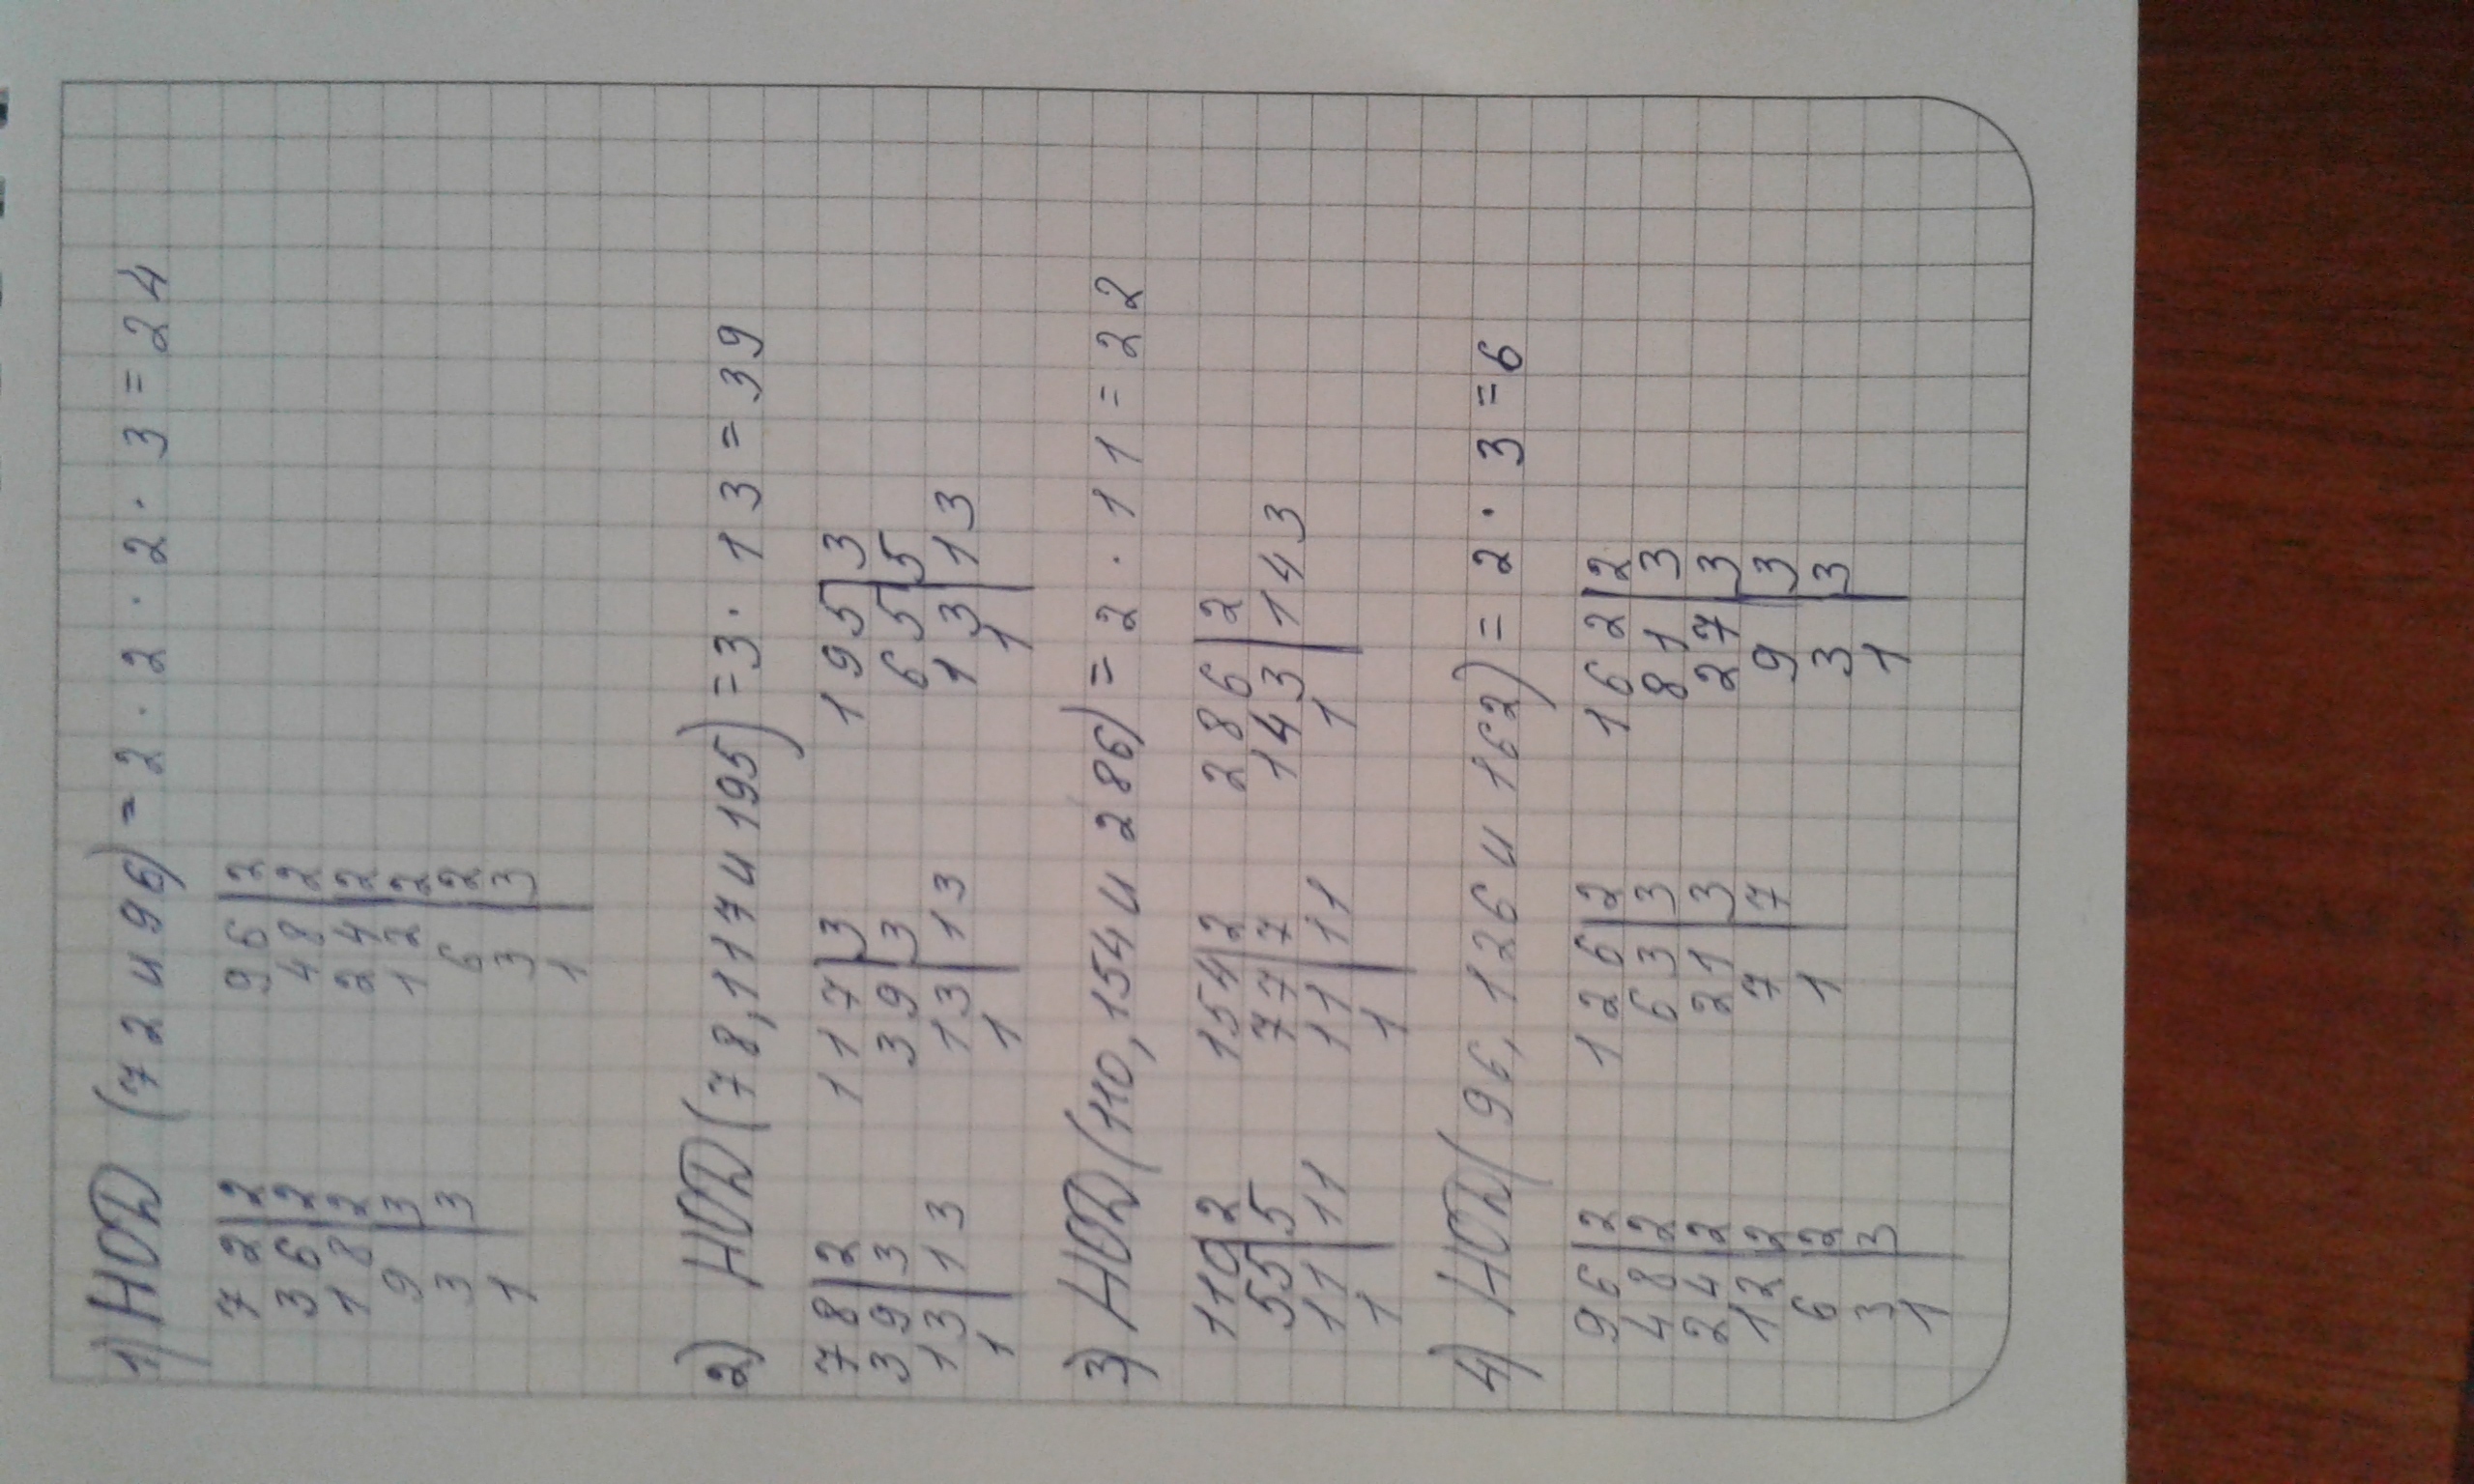 1) НОД (72 и 96) = 2 · 2 · 2 · 3 = 24
72|2 96|2
36|2 48|2
18|2 24|2
9|3 12|2
3|3 6|2
1 3|3
1
2) НОД (78, 117 и 195) = 3 · 13 = 39
78|2 117|3 195|3
39|3 39|3 65|5
13|13 13|13 13|13
1 1 1
3) НОД (110, 154 и 286) = 2 · 11 = 22
110|2 154|2 286|2
55|5 77|7 143|143
11|11 11|11 1
1 1
4) НОД (96, 126 и 162) = 2 · 3 = 6
96|2 126|2 162|2
48|2 63|3 81|3
24|2 21|3 27|3
12|2 7|7 9|3
6|2 1 3|3
3|3 1
1